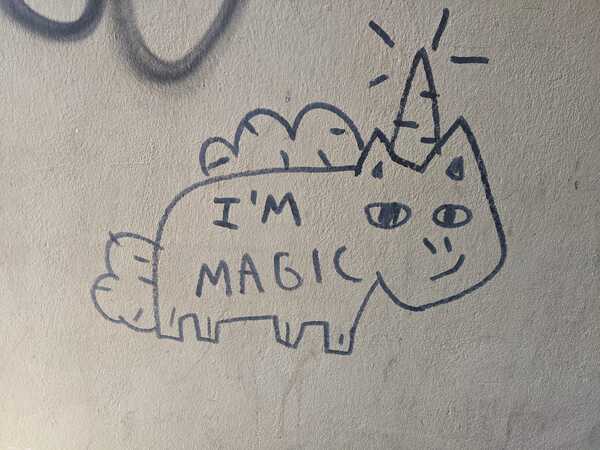 I'M
MAGIC